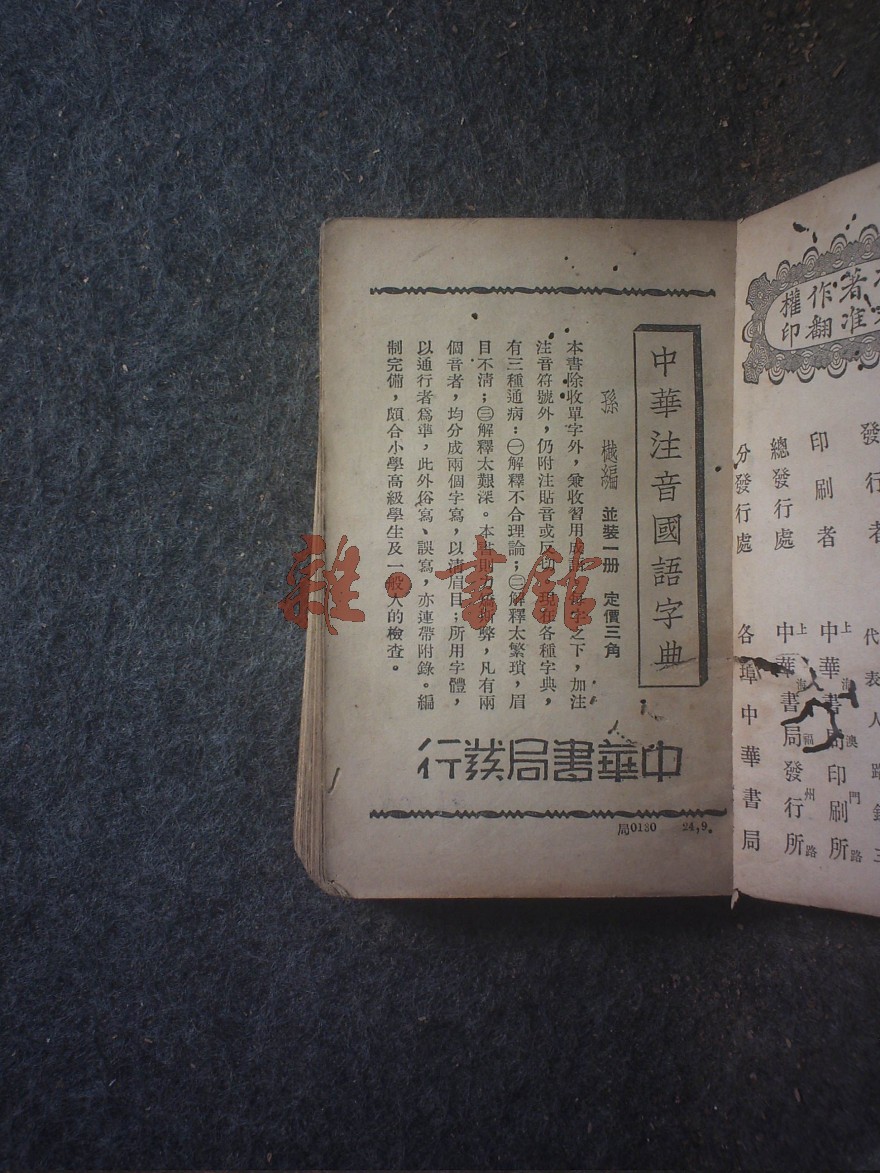 中華注音國語字典
孫樾編 並裝一册 定價三角
本書除收單字外，兼收習用成語。每字之下，加注
注音符號外，仍附注貼音或反切。現在各種字典，
有三種通病：㊀解釋不合理論；㊁解釋太繁瑣，眉
目不淸；㊂解釋太艱深。本書則力矯斯弊，凡有兩
個音者，均分成兩個字寫，以淸眉目；所用字體，
以通行者爲準，此外俗寫、誤寫，亦連帶附錄。編
制完備，頗合小學高級學生及一般人的檢查。
中華書局發行
局0130 24,9。
著
作
權
准
翻
印
發行者
代表人路錫三
印刷者
上海澳門路
中華書局印刷所
總發行處
上海福州路
中華書局發行所
分發行處
各埠中華書局
雜·書館